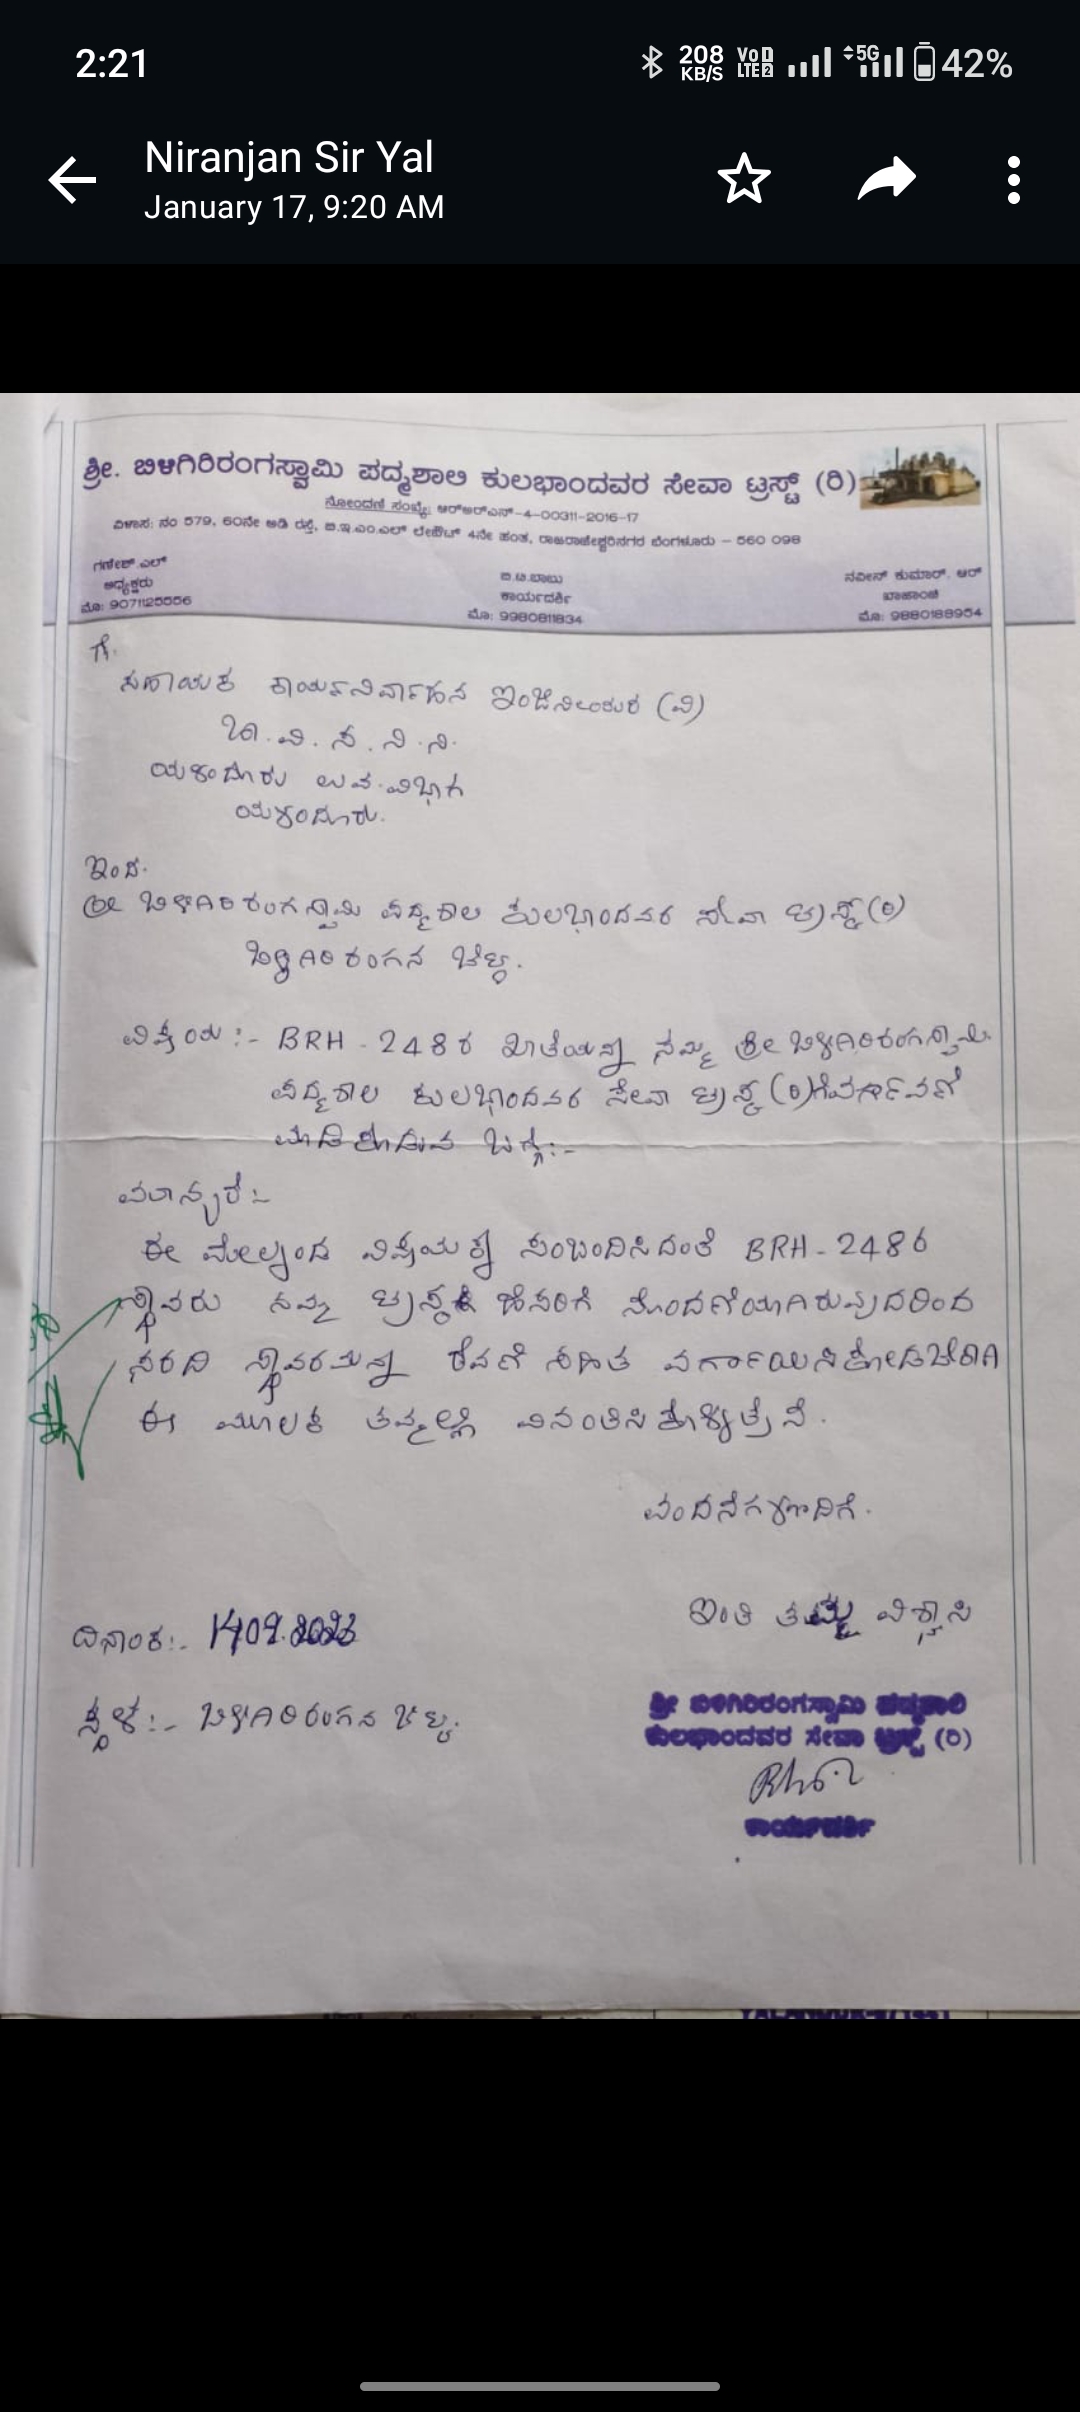 2:21
208 KB/S VoD LTE2 5G 42%
Niranjan Sir Yal
January 17, 9:20 AM
ಶ್ರೀ. ಬಿಳಿಗಿರಿರಂಗಸ್ವಾಮಿ ಪದ್ಮಶಾಲಿ ಕುಲಭಾಂದವರ ಸೇವಾ ಟ್ರಸ್ಟ್ (ರಿ)
ನೋಂದಣಿ ಸಂಖ್ಯೆ: ಆರ್‌ಆರ್‌ಎನ್-4-00311-2016-17
ವಿಳಾಸ: ನಂ 579, 60ನೇ ಅಡಿ ರಸ್ತೆ, ಬಿ.ಇ.ಎಂ.ಎಲ್ ಲೇಔಟ್ 4ನೇ ಹಂತ, ರಾಜರಾಜೇಶ್ವರಿನಗರ ಬೆಂಗಳೂರು - 560 098
ಗಣೇಶ್.ಎಲ್
ಅಧ್ಯಕ್ಷರು
ಮೊ: 9071125556
ಐ.ಟಿ.ಬಾಬು
ಕಾರ್ಯದರ್ಶಿ
ಮೊ: 9980811834
ನವೀನ್ ಕುಮಾರ್. ಆರ್
ಖಜಾಂಚಿ
ಮೊ: 9880188954
ಗೆ.
ಸಹಾಯಕ ಕಾರ್ಯನಿರ್ವಾಹಕ ಇಂಜಿನೀಯರ (ವಿ)
ಚಾ.ವಿ.ಸ.ನಿ.ನಿ.
ಯಳಂದೂರು ಉಪ.ವಿಭಾಗ
ಯಳಂದೂರು.
ಇಂದ.
ಶ್ರೀ ಬಿಳಿಗಿರಿರಂಗಸ್ವಾಮಿ ಪದ್ಮಶಾಲಿ ಕುಲಭಾಂದವರ ಸೇವಾ ಟ್ರಸ್ಟ್ (ರಿ)
ಬಿಳ್ಗಿರಿರಂಗನ ಬೆಟ್ಟ.
ವಿಷಯ:- BRH-248ರ ಖಾತೆಯನ್ನು ನಮ್ಮ ಶ್ರೀ ಬಿಳಿಗಿರಿರಂಗಸ್ವಾಮಿ
ಪದ್ಮಶಾಲಿ ಕುಲಭಾಂದವರ ಸೇವಾ ಟ್ರಸ್ಟ್ (ರಿ)ಗೆ ವರ್ಗಾವಣೆ
ಮಾಡಿಕೊಡುವ ಬಗ್ಗೆ:-
ಮಾನ್ಯರೆ:-
ಈ ಮೇಲ್ಕಂಡ ವಿಷಯಕ್ಕೆ ಸಂಬಂದಿಸಿದಂತೆ BRH-248ರ
ಸ್ಥಾವರು ನಮ್ಮ ಟ್ರಸ್ಟ್‌ ಹೆಸರಿಗೆ ನೊಂದಣಿಯಾಗಿರುವುದರಿಂದ
ಸರದಿ ಸ್ಥಾವರವನ್ನು ಠೇವಣಿ ಸಹಿತ ವರ್ಗಾಯಿಸಿಕೊಡಬೇಕಾಗಿ
ಈ ಮೂಲಕ ತಮ್ಮಲ್ಲಿ ವಿನಂತಿಸಿಕೊಳ್ಳುತ್ತೇನೆ.
ವಂದನೆಗಳೊಂದಿಗೆ.
ಇಂತಿ ತಮ್ಮ ವಿಶ್ವಾಸಿ
ದಿನಾಂಕ:-
ಸ್ಥಳ:- ಬಿಳಿಗಿರಿರಂಗನ ಬೆಟ್ಟ.
ಶ್ರೀ ಬಿಳಿಗಿರಿರಂಗಸ್ವಾಮಿ ಪದ್ಮಶಾಲಿ
ಕುಲಭಾಂದವರ ಸೇವಾ ಟ್ರಸ್ಟ್ (ರಿ)
ಕಾರ್ಯದರ್ಶಿ